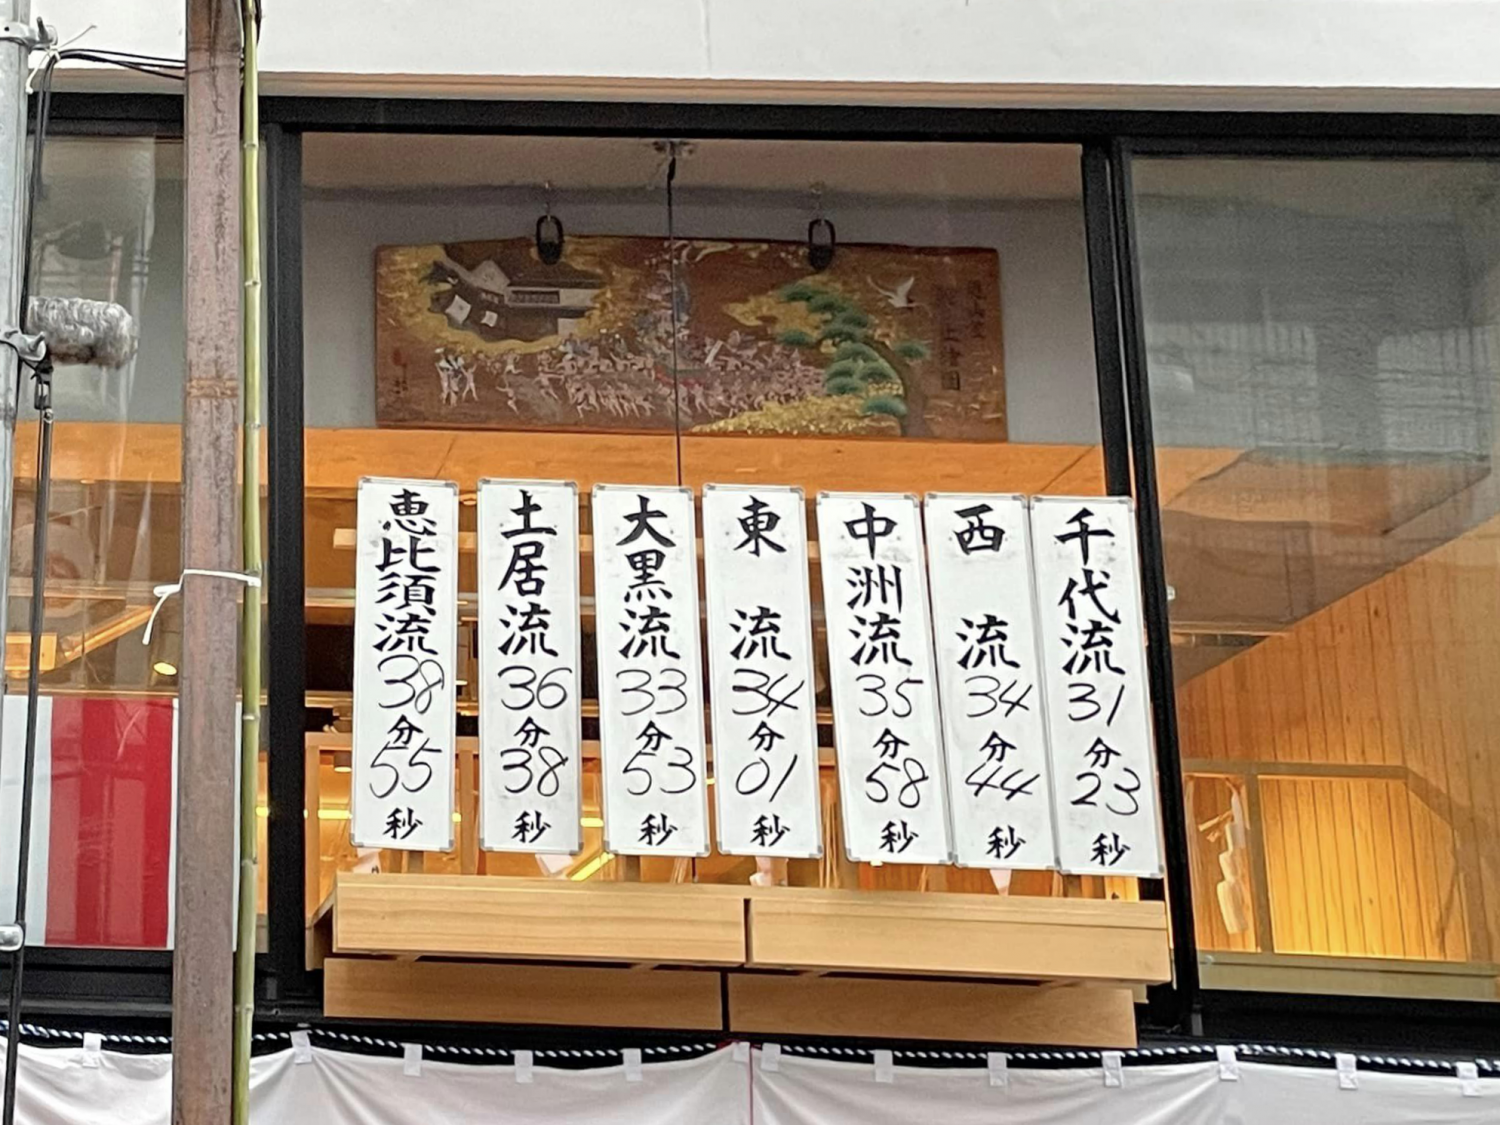 千代流31分23秒
西流34分44秒
中洲流35分58秒
東流34分01秒
大黒流33分53秒
土居流36分38秒
恵比須流38分55秒